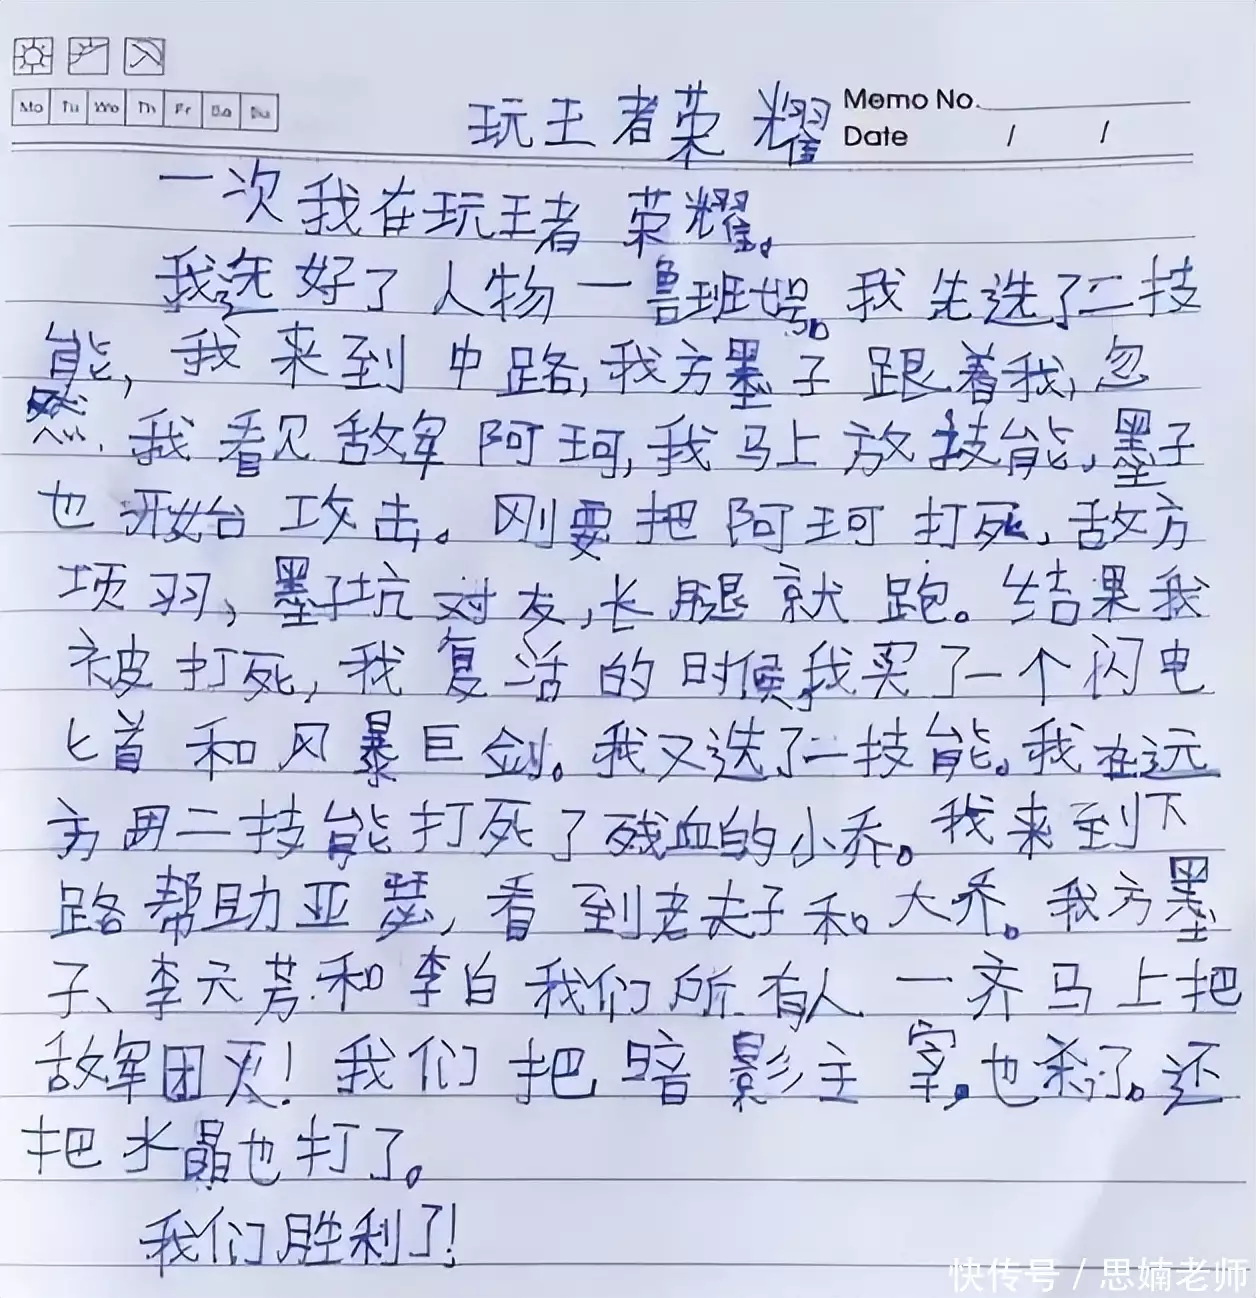 Mo Tu We Th Fr Sa Su
玩王者荣耀
Memo No.
Date / /
一次我在玩王者荣耀。
我选好了人物一鲁班七号。我先选了二技
能，我来到中路，我方墨子跟着我，忽
然，我看见敌军阿珂，我马上放技能，墨子
也开始台攻击。刚要把阿珂打死，敌方
项羽、墨子坑对友，长腿就跑。结果我
被打死，我复活的时候，我买了一个闪电
匕首和风暴巨剑。我又选了二技能。我在远
方用二技能打死了残血的小乔。我来到下
路帮助亚瑟，看到老夫子和大乔。我方墨
子、李元芳和李白我们所有人一齐马上把
敌军团灭！我们把暗影主宰，也杀了。还
把水晶也打了。
我们胜利了！
快传号 / 思婻老师